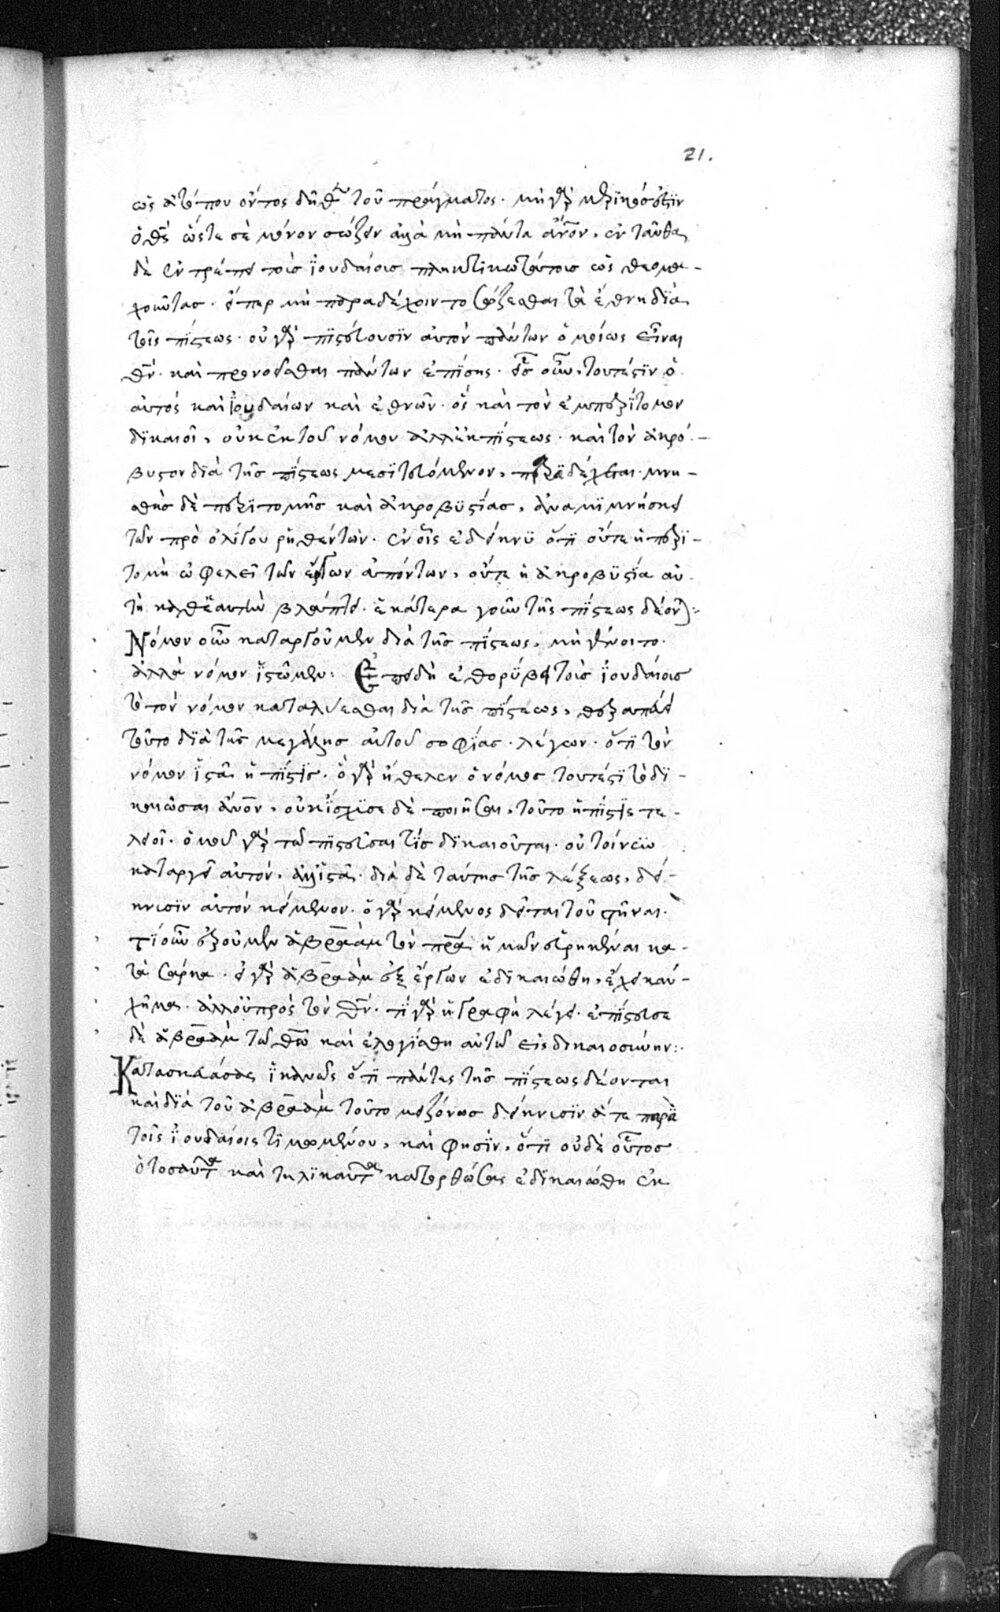 21.
ὡς ἀτόπου ὄντος δῆθεν τοῦ πράγματος. μὴ γὰρ μερικός ἐστιν
ὁ θς ὥστε σὲ μόνον σώζειν ἀλλὰ μὴ πάντα ἄνον. ἐνταῦθα
δὲ ἐντρέπει τοὺς ἰουδαίους πληκτικωτάτοις ὡς θεομα-
χοῦντας. εἴπερ μὴ παραδέχοιντο σώζεσθαι τὰ ἔθνη διὰ
τῆς πίστεως. οὐ γὰρ πιστεύουσιν αὐτὸν πάντων ὁμοίως εἶναι
θν. καὶ προνοεῖσθαι πάντων ἐπίσης. εἷς οὖν, τουτέστιν ὁ
αὐτὸς καὶ ἰουδαίων καὶ ἐθνῶν. ὃς καὶ τὸν ἐμπερίτομον
δικαιοῖ, οὐκ ἐκ τοῦ νόμου ἀλλ' ἐκ πίστεως. καὶ τὸν ἀκρό-
βυστον διὰ τῆς πίστεως μεσιτευόμενον, παραδέχεται. μνη-
σθεὶς δὲ περιτομῆς καὶ ἀκροβυστίας, ἀναμιμνήσκει
τῶν πρὸ ὀλίγου ῥηθέντων. ἐν οἷς ἐδείκνυ ὅτι οὔτε ἡ περι-
τομὴ ὠφελεῖ τῶν ἔργων ἀπόντων, οὔτε ἡ ἀκροβυστία αὐ
τὴ καθ' ἑαυτὴν βλάπτει. ἑκάτερα γοῦν τῆς πίστεως δέον):
Νόμον οὖν καταργοῦμεν διὰ τῆς πίστεως, μὴ γένοιτο.
ἀλλὰ νόμον ἱστῶμεν: Ἐπειδὴ ἐθορύβει τοὺς ἰουδαίους
τὸ τὸν νόμον καταλύεσθαι διὰ τῆς πίστεως, θεραπεύει
τοῦτο διὰ τῆς μεγάλης αὐτοῦ σοφίας. λέγων. ὅτι τὸν
νόμον ἱστᾶ ἡ πίστις. ὃ γὰρ ἤθελεν ὁ νόμος τουτέστι τὸ δι-
καιῶσαι ἄνον, οὐκ ἴσχυσε δὲ ποιῆσαι, τοῦτο ἡ πίστις τε-
λειοῖ. ὁμοῦ γὰρ τῷ πιστεῦσαί τις δικαιοῦται. οὐ τοίνυν
καταργεῖ αὐτόν, ἀλλ' ἱστᾶ. διὰ δὲ ταύτης τῆς λέξεως, δεί-
κνυσιν αὐτὸν κείμενον. ὁ γὰρ κείμενος δεῖται τοῦ στῆναι.
Τί οὖν ἐροῦμεν ἀβραὰμ τὸν πρα ἡμῶν εὑρηκέναι κα-
τὰ σάρκα. εἰ γὰρ ἀβραὰμ ἐξ ἔργων ἐδικαιώθη, ἔχει καύ-
χημα. ἀλλ' οὐ πρὸς τὸν θν. τί γὰρ ἡ γραφὴ λέγει. ἐπίστευσε
δὲ ἀβραὰμ τῷ θῶ καὶ ἐλογίσθη αὐτῷ εἰς δικαιοσύνην:
Κατασκευάσας ἱκανῶς ὅτι πάντες τῆς πίστεως δέονται
καὶ διὰ τοῦ ἀβραὰμ τοῦτο μειζόνως δείκνυσιν ἅτε παρὰ
τοῖς ἰουδαίοις τιμωμένου, καὶ φησίν, ὅτι οὐδὲ οὗτος
ὁ τοσαῦτα καὶ τηλικαῦτα κατορθώσας ἐδικαιώθη ἐκ